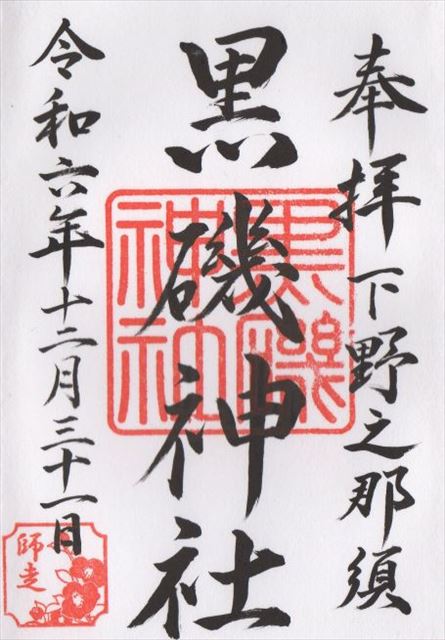 奉拝 下野之那須
黒磯神社
令和六年十二月三十一日
黒磯神社
師走